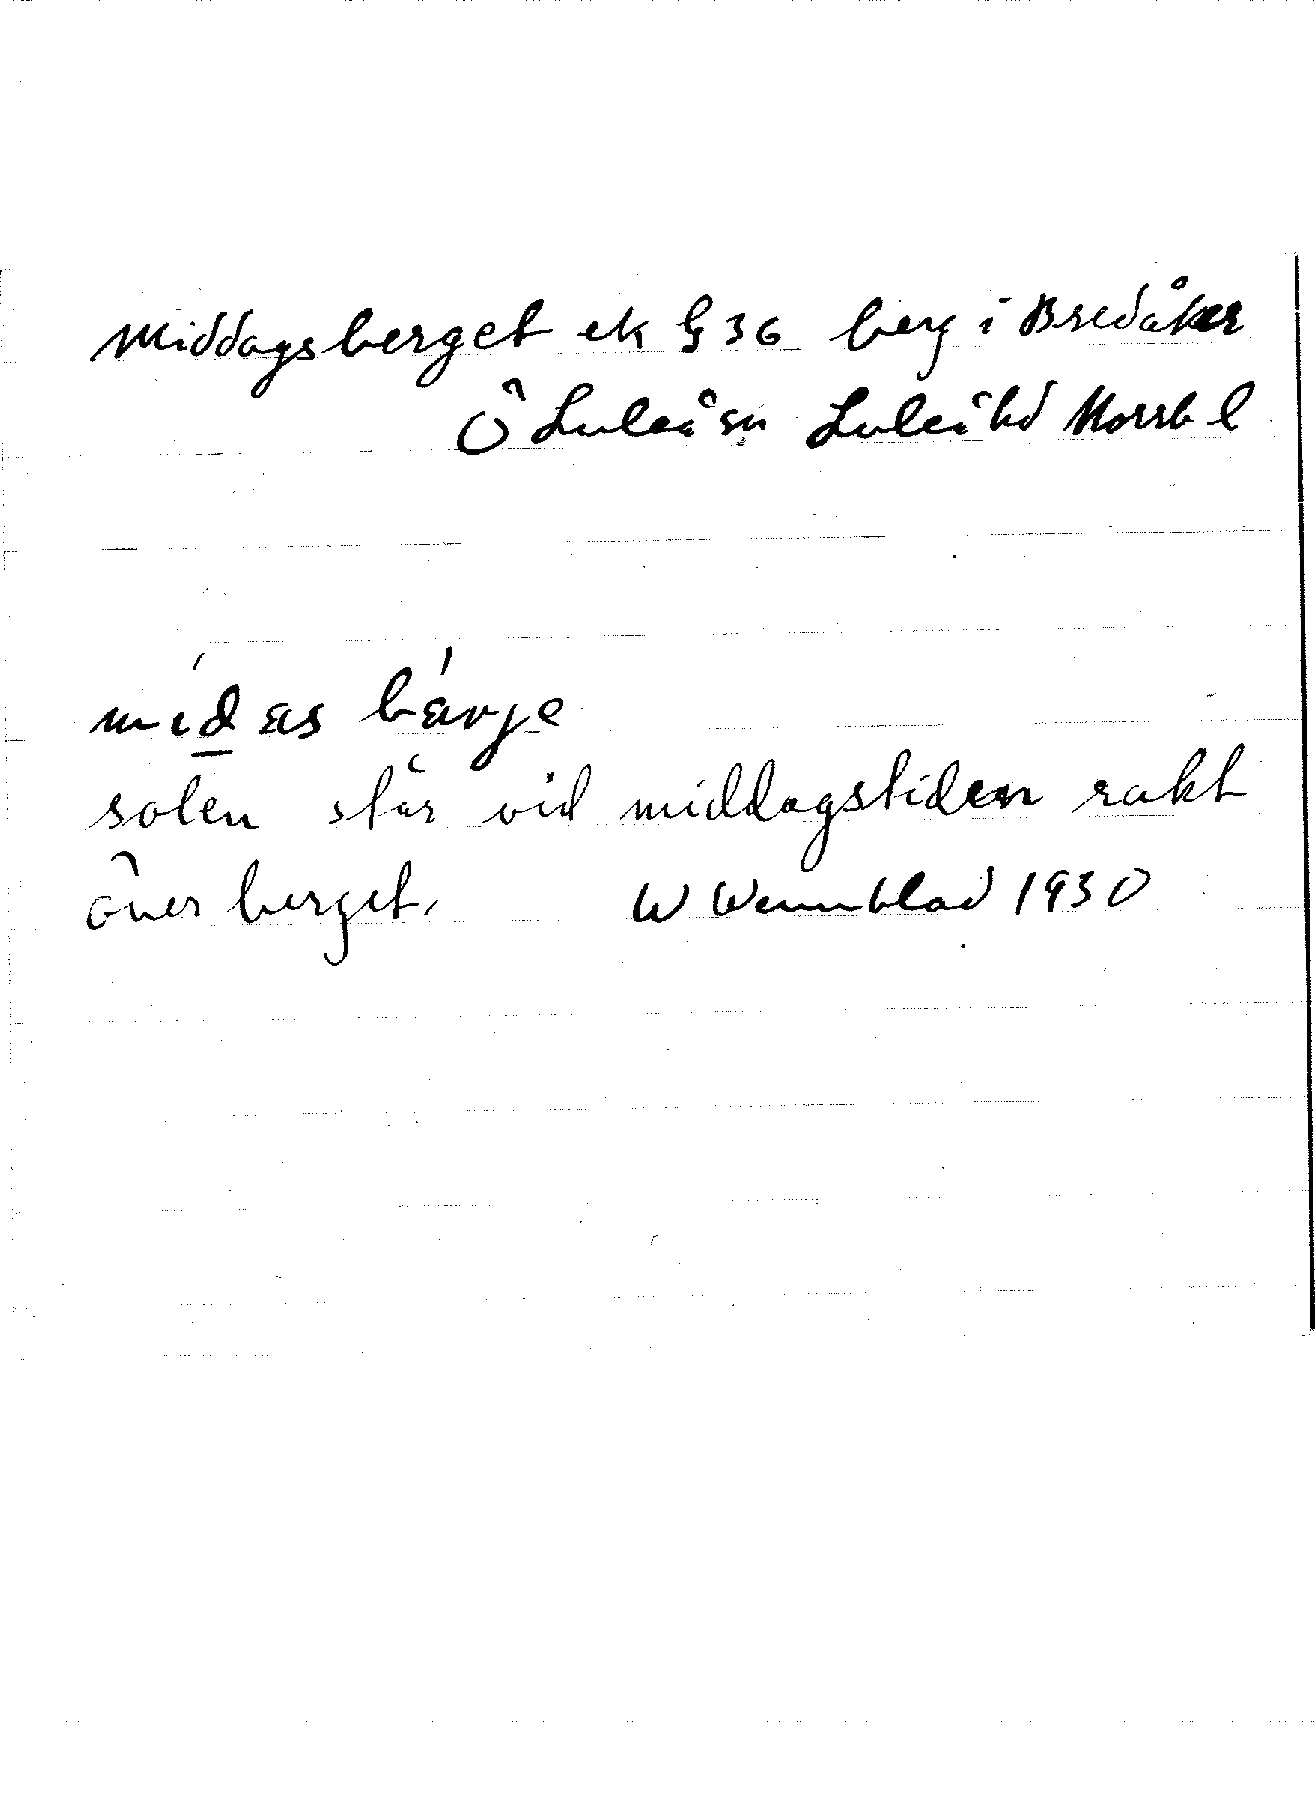 Middagsberget ek § 36 berg i Bredåker
Ö Luleå sn Luleå hd Norrb l
mídas bärje
solen står vid middagstiden rakt
över berget.
W Wennblad 1930